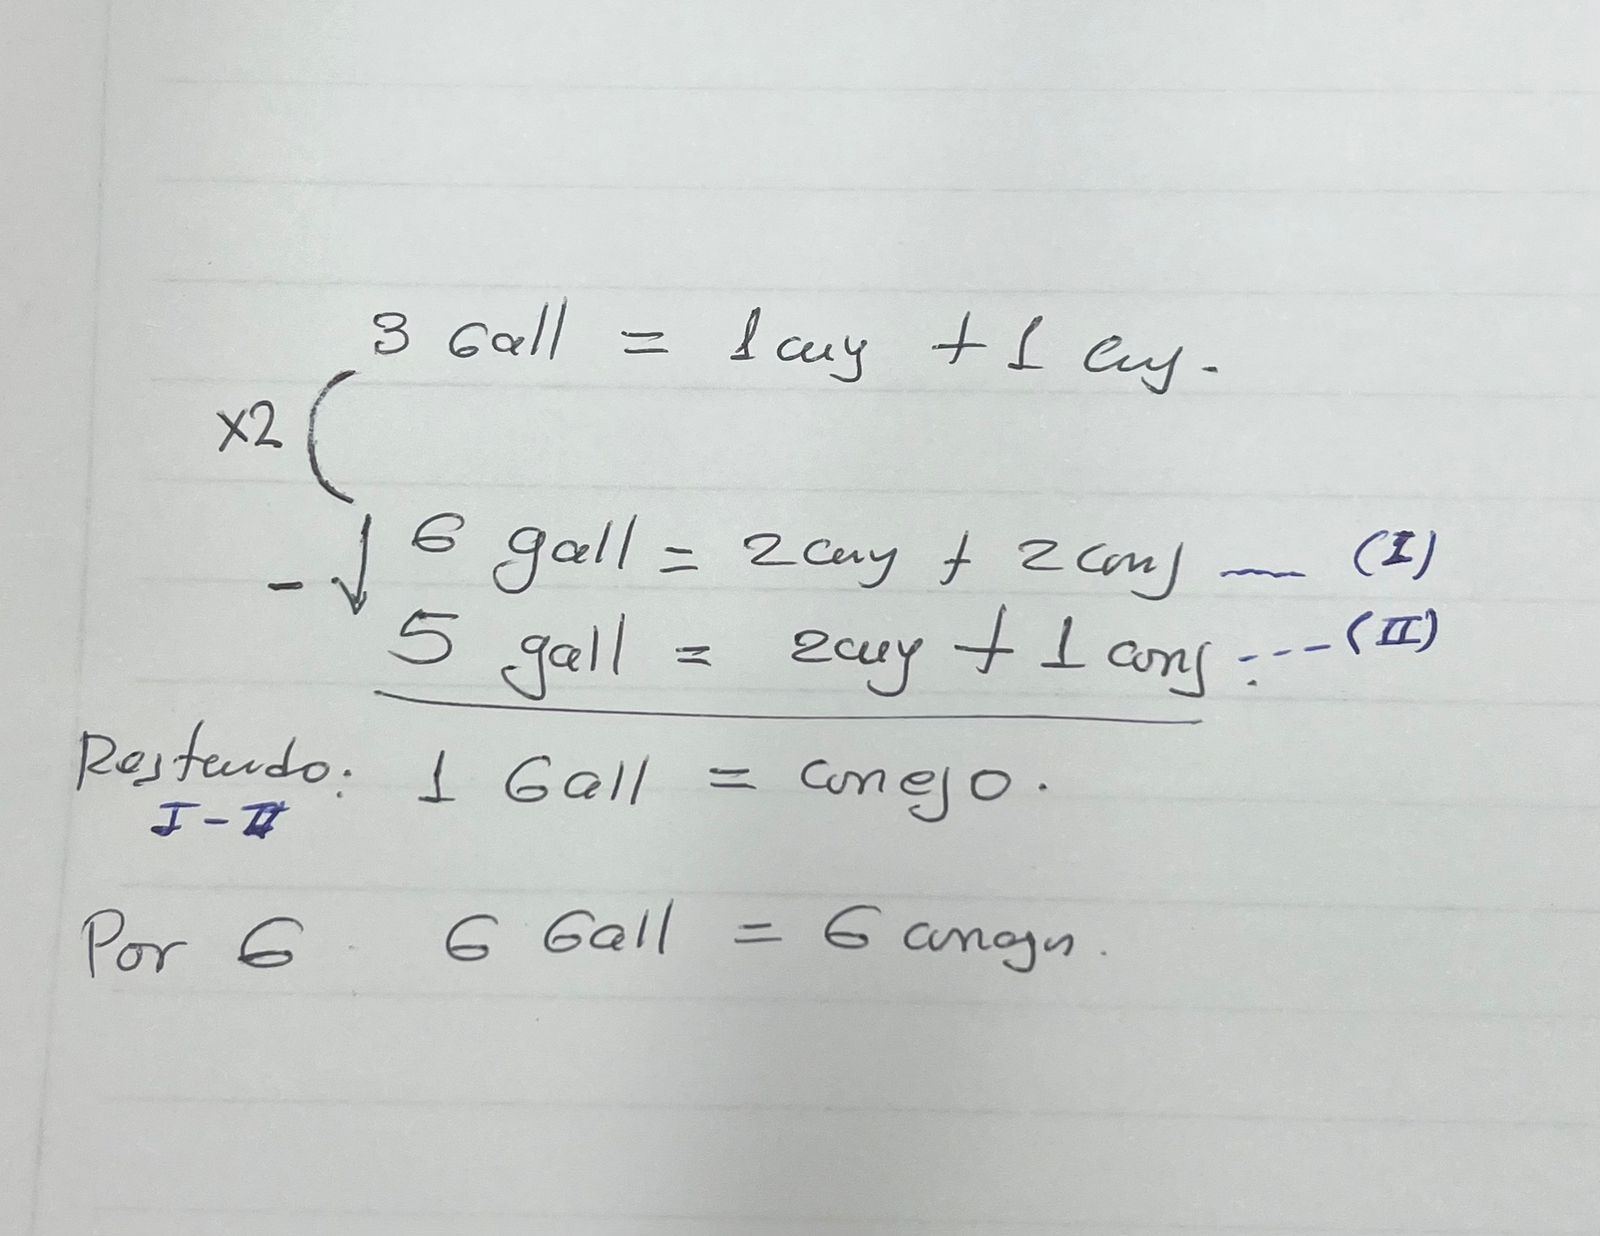 3 Gall = 1 cuy + 1 cuy.
x2
6 gall = 2 cuy + 2 conj (I)
- 5 gall = 2 cuy + 1 conj. --- (II)
Restando: 1 Gall = conejo.
I - II
Por 6 6 Gall = 6 conejos.